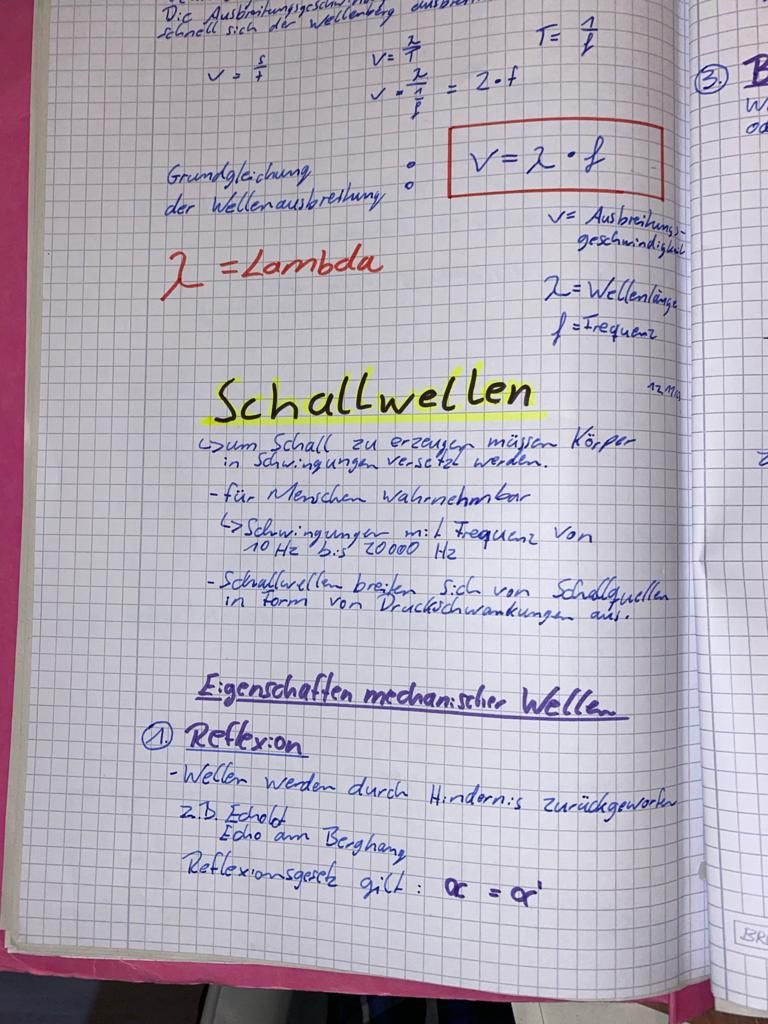 Die Ausbreitungsgeschwin
schnell sich der Wellenberg ausbrei
v = s/t
v = λ/T
T = 1/f
v = λ/(1/f) = λ · f
Grundgleichung
der Wellenausbreitung :
v = λ · f
v = Ausbreitungs-
geschwindigkeit
λ = Lambda
λ = Wellenlänge
f = Frequenz
Schallwellen
↳ um Schall zu erzeugen müssen Körper
in Schwingungen versetzt werden.
- für Menschen wahrnehmbar
↳ Schwingungen mit Frequenz von
10 Hz bis 20000 Hz
- Schallwellen breiten sich von Schallquellen
in Form von Druckschwankungen aus.
Eigenschaften mechanischer Wellen
1. Reflexion
- Wellen werden durch Hindernis zurückgeworfen
z.B. Echolot
Echo am Berghang
Reflexionsgesetz gilt : α = α'
3. B
W
od
BR